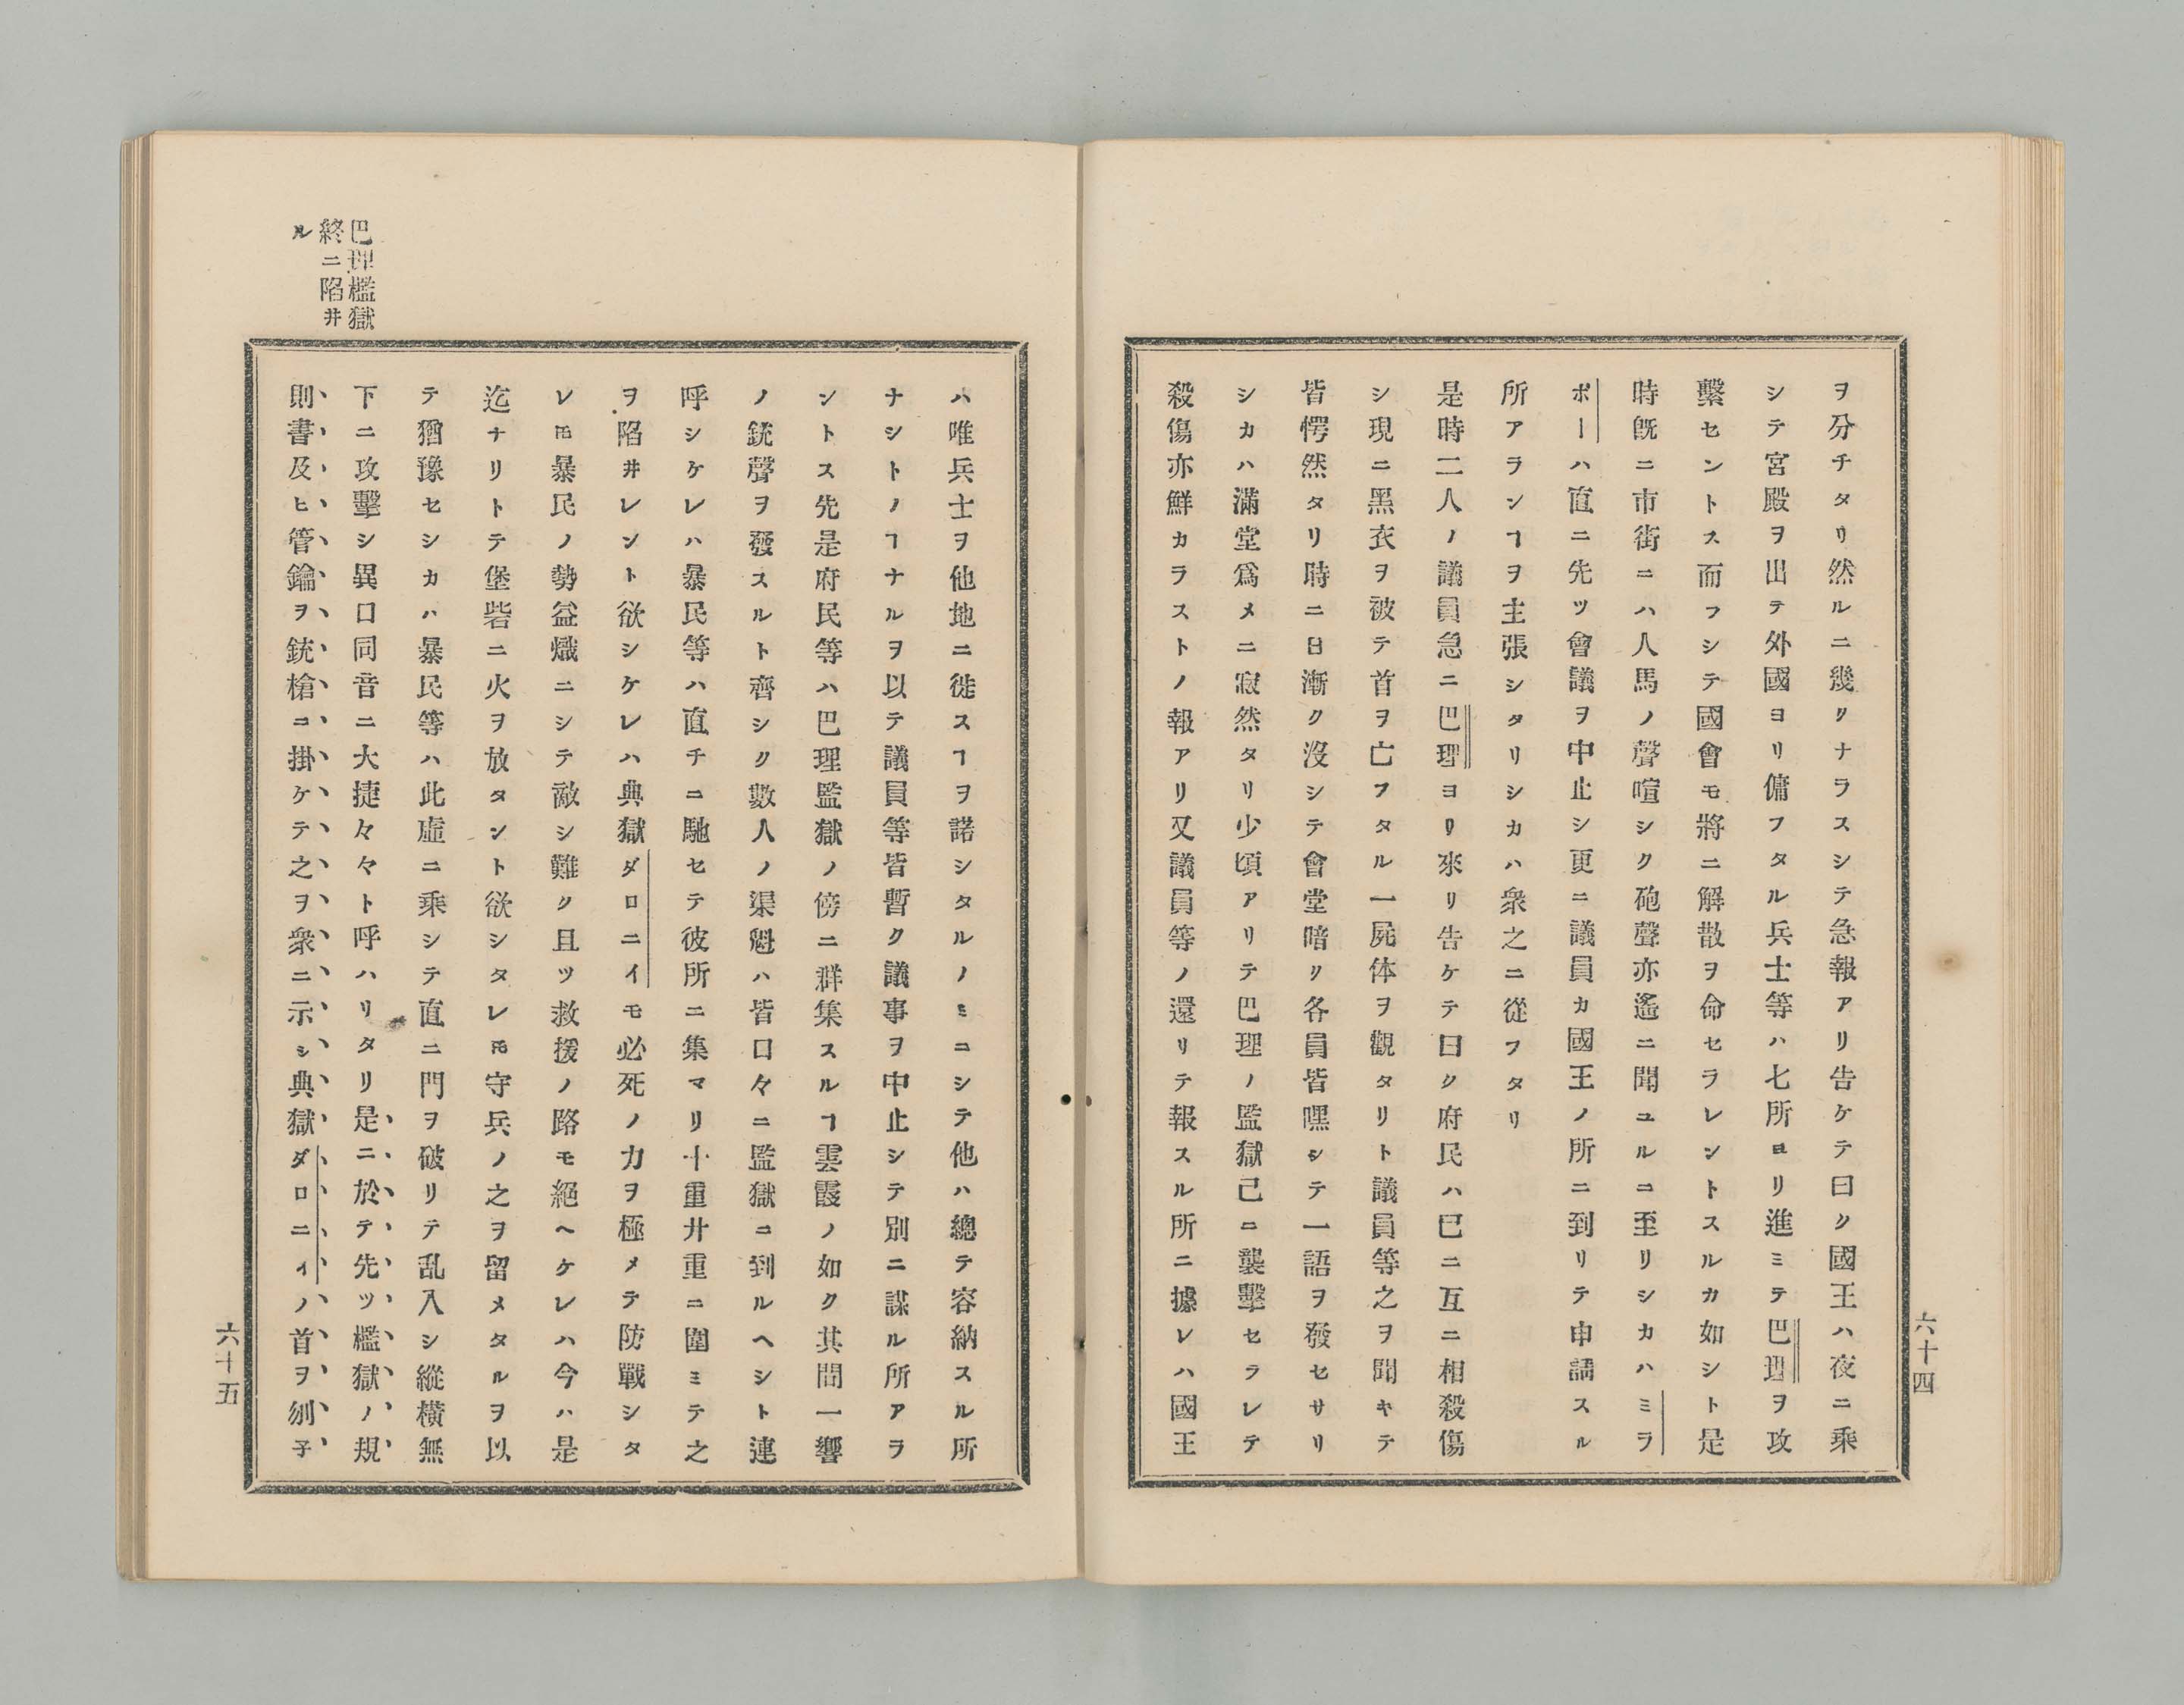 ヲ分チタリ然ルニ幾クナラスシテ急報アリ告ケテ曰ク國王ハ夜ニ乘
シテ宮殿ヲ出テ外國ヨリ傭フタル兵士等ハ七所ヨリ進ミテ巴理ヲ攻
繫セントス而フシテ國會モ將ニ解散ヲ命セラレントスルカ如シト是
時旣ニ市街ニハ人馬ノ聲喧シク砲聲亦遙ニ聞ユルニ至リシカハミラ
ボーハ直ニ先ツ會議ヲ中止シ更ニ議員カ國王ノ所ニ到リテ申請スル
所アランヿヲ主張シタリシカハ衆之ニ從フタリ
是時二人ノ議員急ニ巴理ヨリ來リ告ケテ曰ク府民ハ巳ニ互ニ相殺傷
シ現ニ黑衣ヲ被テ首ヲ亡フタル一屍体ヲ觀タリト議員等之ヲ聞キテ
皆愕然タリ時ニ日漸ク沒シテ會堂暗ク各員皆嘿シテ一語ヲ發セサリ
シカハ滿堂爲メニ寂然タリ少頃アリテ巴理ノ監獄己ニ襲擊セラレテ
殺傷亦鮮カラストノ報アリ又議員等ノ還リテ報スル所ニ據レハ國王
六十四
ハ唯兵士ヲ他地ニ徙スヿヲ諾シタルノミニシテ他ハ總テ容納スル所
ナシトノヿナルヲ以テ議員等皆暫ク議事ヲ中止シテ別ニ謀ル所アラ
ントス先是府民等ハ巴理監獄ノ傍ニ群集スルヿ雲霞ノ如ク其間一響
ノ銃聲ヲ發スルト齊シク數人ノ渠魁ハ皆口々ニ監獄ニ到ルヘシト連
呼シケレハ暴民等ハ直チニ馳セテ彼所ニ集マリ十重廿重ニ圍ミテ之
ヲ陷井レント欲シケレハ典獄ダロニイモ必死ノ力ヲ極メテ防戰シタ
レ𪜈暴民ノ勢益熾ニシテ敵シ難ク且ツ救援ノ路モ絕ヘケレハ今ハ是
迄ナリトテ堡砦ニ火ヲ放タント欲シタレ𪜈守兵ノ之ヲ留メタルヲ以
テ猶豫セシカハ暴民等ハ此虛ニ乘シテ直ニ門ヲ破リテ乱入シ縱橫無
下ニ攻擊シ異口同音ニ大捷々々ト呼ハリタリ是ニ於テ先ツ檻獄ノ規
則書及ヒ管鑰ヲ銃槍ニ掛ケテ之ヲ衆ニ示シ典獄ダロニイノ首ヲ刎子
巴理檻獄
終ニ陷井
ル
六十五